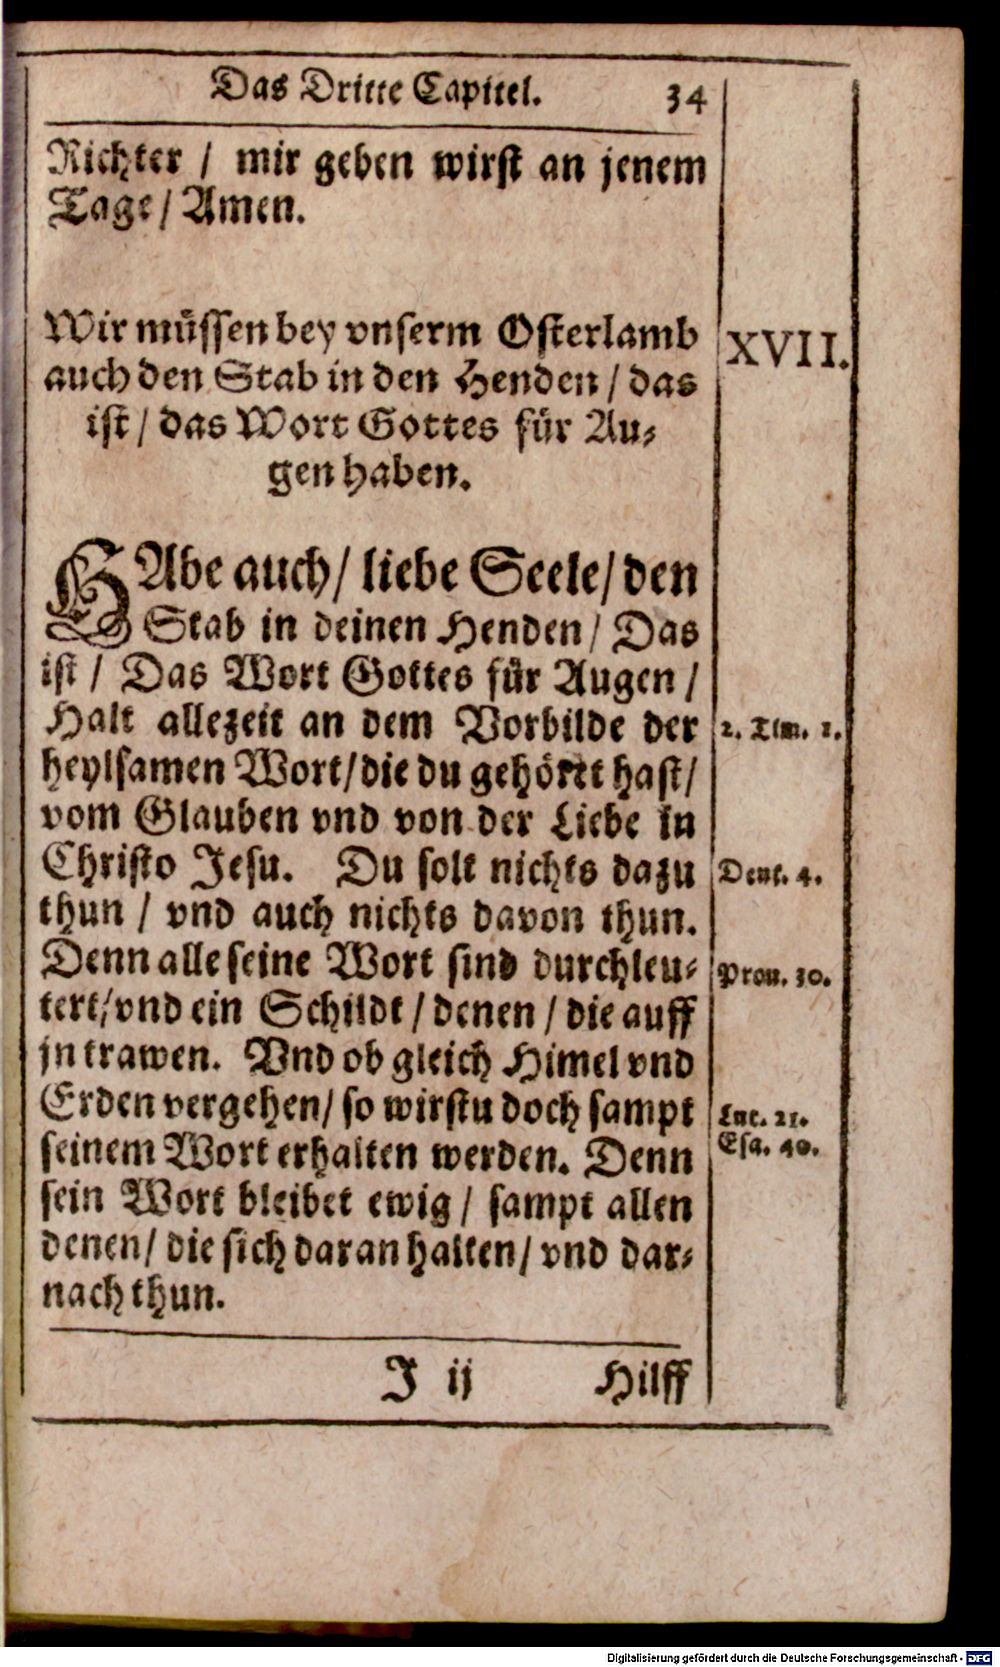 Das Dritte Capitel. 34
Richter / mir geben wirst an jenem
Tage / Amen.
Wir müssen bey vnserm Osterlamb
auch den Stab in den Henden / das
ist / das Wort Gottes für Au-
gen haben.
XVII.
HAbe auch / liebe Seele / den
Stab in deinen Henden / Das
ist / Das Wort Gottes für Augen /
Halt allezeit an dem Vorbilde der
2. Tim. 1.
heylsamen Wort / die du gehöret hast /
vom Glauben vnd von der Liebe in
Christo Jesu. Du solt nichts dazu
Deut. 4.
thun / vnd auch nichts davon thun.
Denn alle seine Wort sind durchleu-
Prou. 30.
tert / vnd ein Schildt / denen / die auff
jn trawen. Vnd ob gleich Himel vnd
Erden vergehen / so wirstu doch sampt
Luc. 21.
seinem Wort erhalten werden. Denn
Esa. 40.
sein Wort bleibet ewig / sampt allen
denen / die sich daran halten / vnd dar-
nach thun.
J ij Hilff
Digitalisierung gefördert durch die Deutsche Forschungsgemeinschaft - DFG